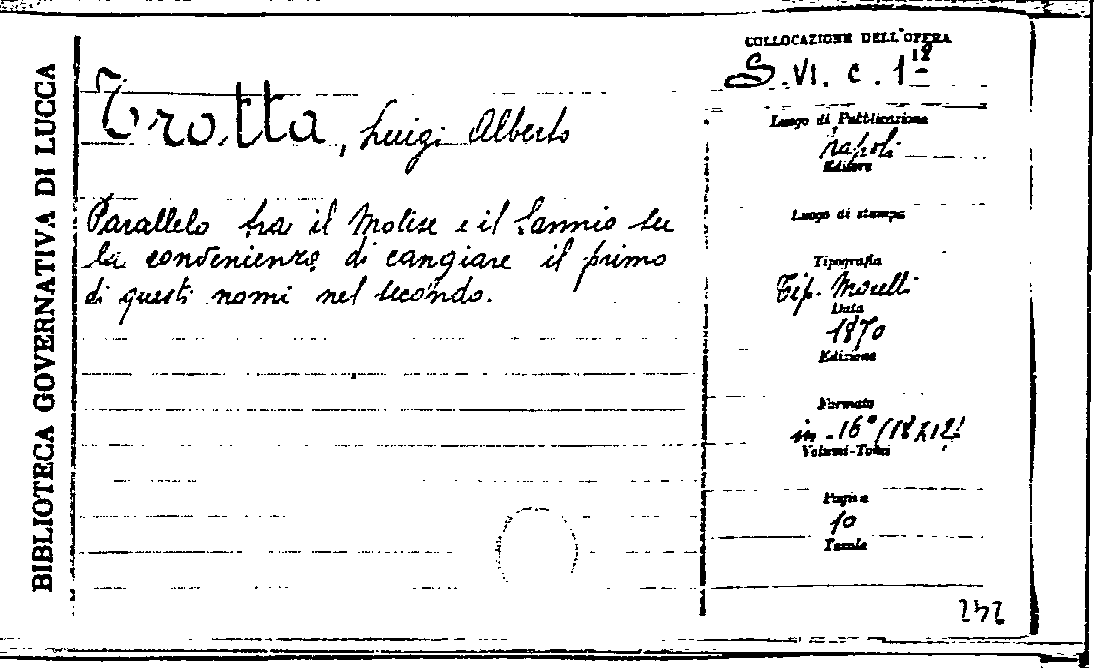 BIBLIOTECA GOVERNATIVA DI LUCCA
Trotta, Luigi Alberto
Parallelo tra il Molise e il Sannio su
la convenienza di cangiare il primo
di questi nomi nel secondo.
COLLOCAZIONE DELL'OPERA
S.VI. c. 1
Luogo di Pubblicazione
Napoli
Editore
Luogo di stampa
Tipografia
Tip. Morelli
Data
1870
Edizione
Formato
in-16° (18x12)
Volumi-Tomi
Pagine
10
Tavole